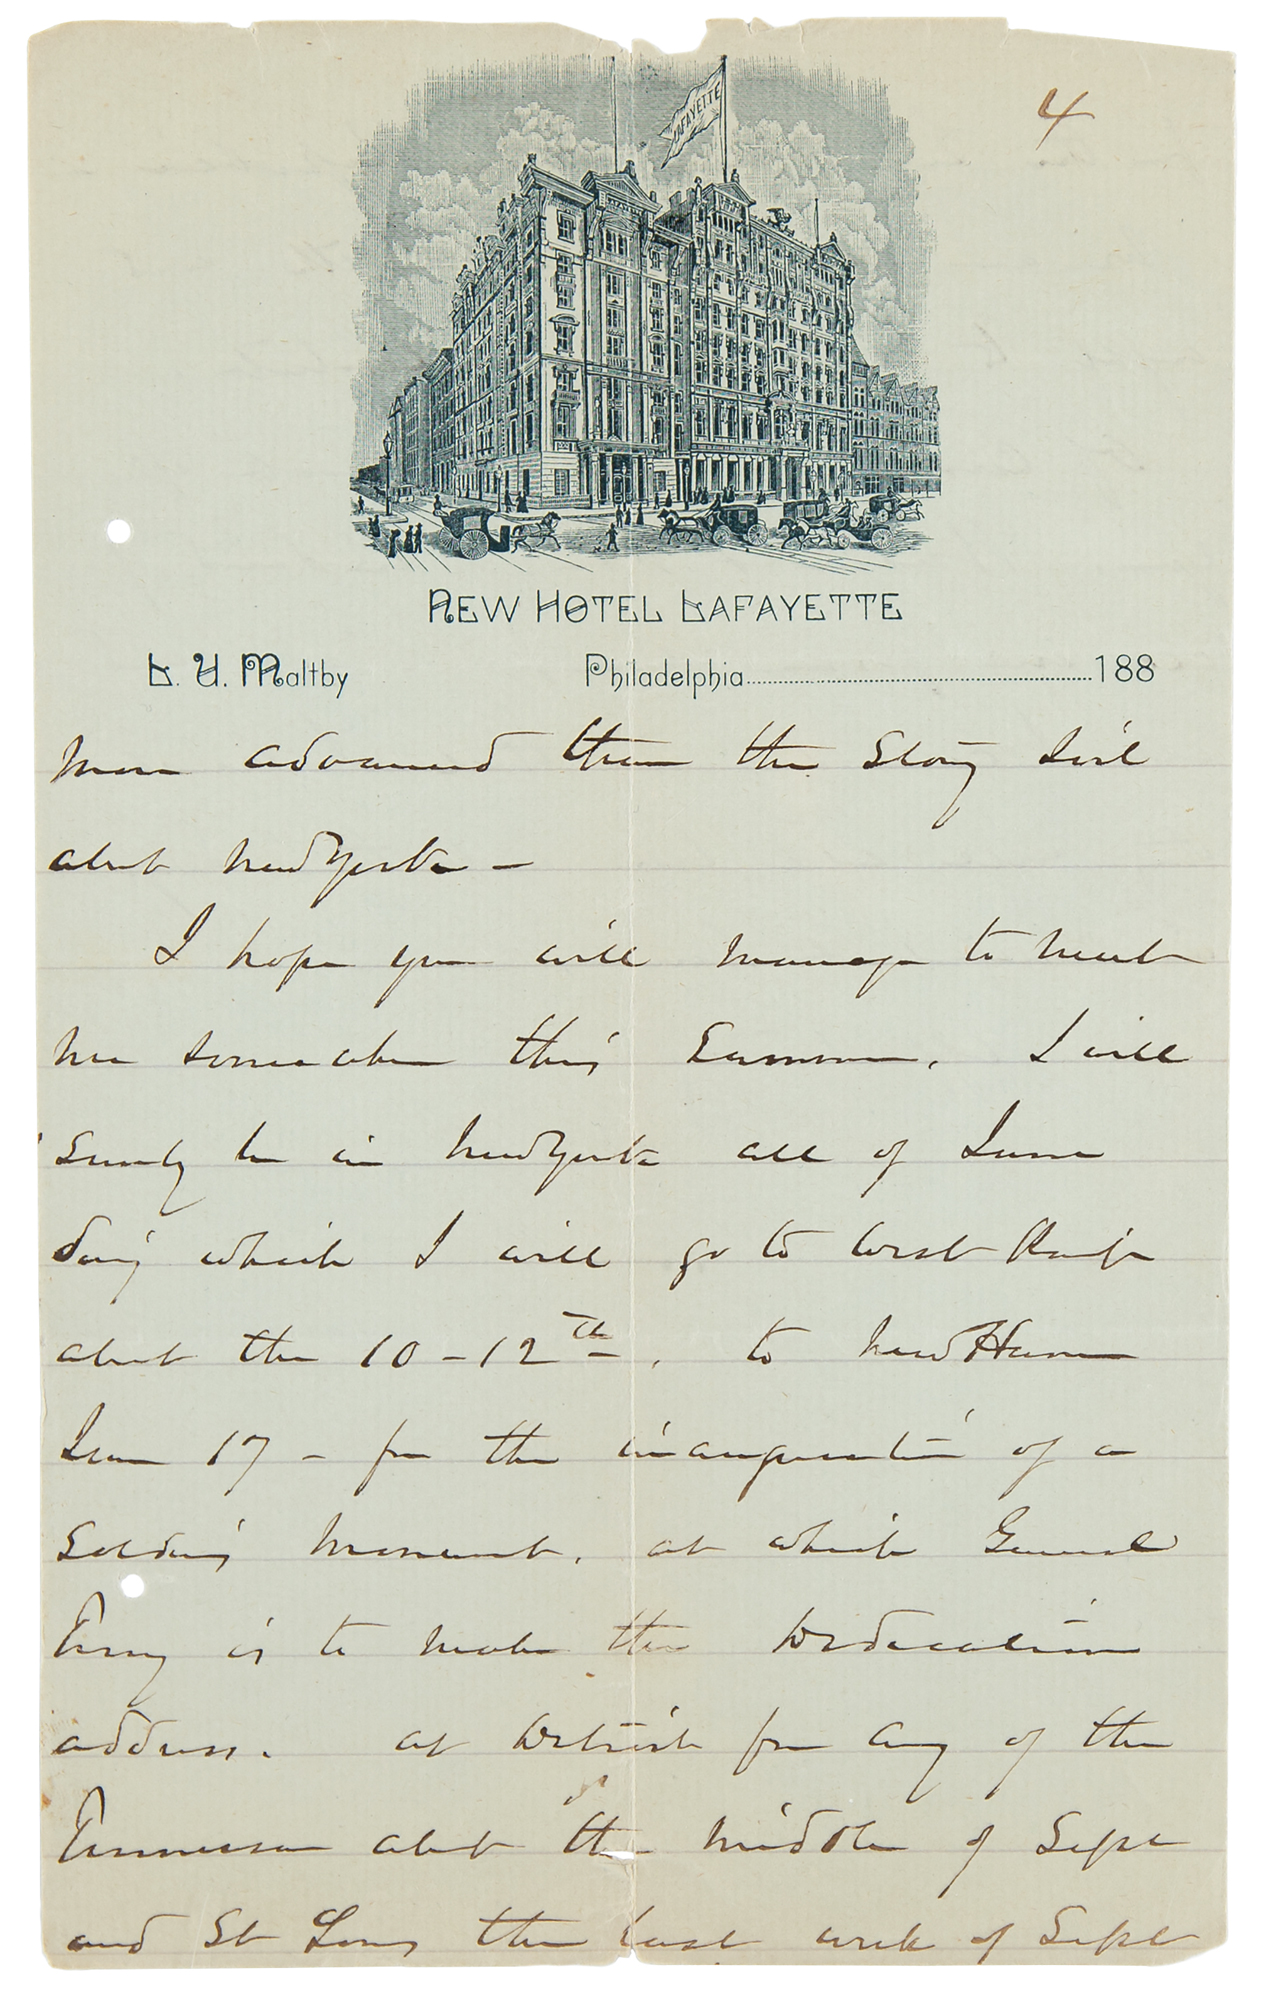 4
LAFAYETTE
NEW HOTEL LAFAYETTE
L. U. Maltby Philadelphia 188
more advanced than the Story Girl
about New York -
I hope you will manage to meet
me somewhere this Summer. I will
surely be in New York all of June
during which I will go to West Point
about the 10-12th, to New Haven
June 17 - for the inauguration of a
Soldiers Monument, at which General
Terry is to make the Dedication
address. at Detroit for Army of the
Tennessee about the middle of Sept
and St Louis the last week of Sept